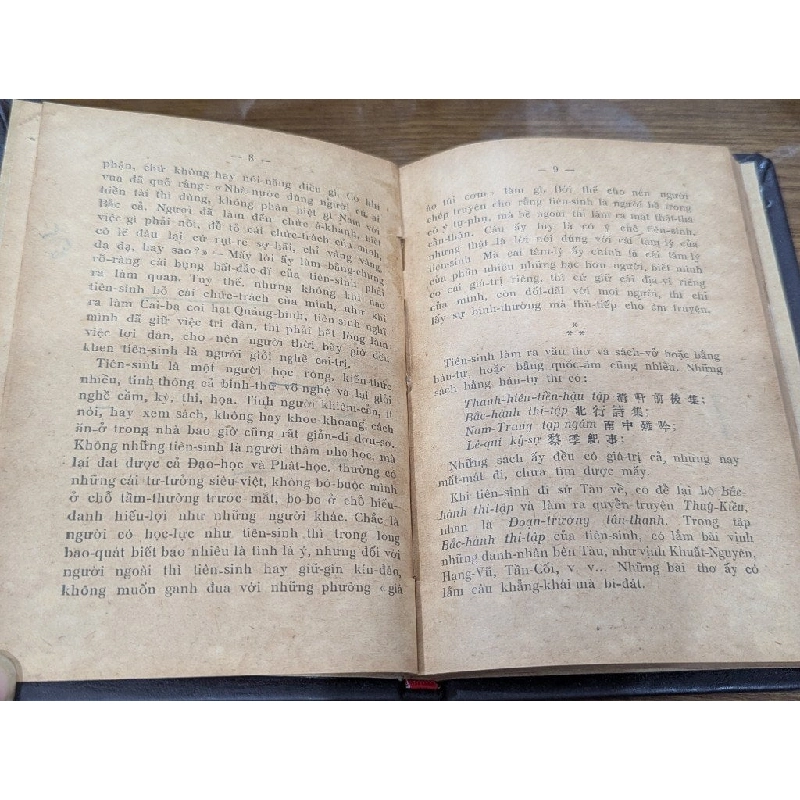 — 8 —
phận, chứ không hay nói-năng điều gì. Có khi
vua đã quở rằng: « Nhà-nước dùng người, cứ ai
hiền tài thì dùng, không phân biệt gì Nam với
Bắc cả. Ngươi đã làm đến chức á-khanh, biết
việc gì phải nói, để tỏ cái chức-trách của mình,
có lẽ đâu lại cứ rụt-rè sợ-hãi, chỉ vâng vâng,
dạ dạ, hay sao? » — Mấy lời ấy làm bằng-chứng
rõ-ràng cái bụng bất-đắc-dĩ của tiên-sinh phải
ra làm quan. Tuy thế, nhưng không khi nào
tiên-sinh bỏ cái chức-trách của mình, như khi
ra làm Cai-bạ coi hạt Quảng-bình, tiên sinh nghĩ
mình đã giữ việc trị dân, thì phải hết lòng làm
việc lợi dân, cho nên người thời bấy giờ đều
khen tiên-sinh là người giỏi nghề cai-trị.
Tiên-sinh là một người học rộng, kiến-thức
nhiều, tinh thông cả binh-thư võ nghệ và lại giỏi
nghề cầm, kỳ, thi, họa. Tính người khiêm-cẩn, ít
nói, hay xem sách, không hay khoe khoang, cách
ăn-ở trong nhà bao giờ cũng rất giản-dị đơn-sơ.
Không những tiên-sinh là người thâm nho học, mà
lại đạt được cả Đạo-học và Phật-học, thường có
những cái tư-tưởng siêu-việt, không bó-buộc mình
ở chỗ tầm-thường trước mắt, bo-bo ở chỗ hiếu-
danh hiếu-lợi như những người khác. Chắc là
người có học-lực như tiên-sinh thì trong lòng
bao-quát biết bao nhiêu là tình là ý, nhưng đối với
người ngoài thì tiên-sinh hay giữ-gìn kín-đáo,
không muốn ganh đua với những phường « giá
— 9 —
áo túi cơm » làm gì. Bởi thế cho nên người
chép truyện cho rằng tiên-sinh là người bề trong
có ý tự-phụ, mà bề ngoài thì làm ra mặt thật-thà
cẩn-thận. Câu ấy tuy là có ý chê tiên-sinh,
nhưng thật là lời nói đúng với cái tâm-lý của
tiên-sinh. Mà cái tâm-lý ấy chính là cái tâm-lý
của phần nhiều những bậc hơn người, biết mình
có cái giá-trị riêng, thì cứ giữ cái địa-vị riêng
của mình, còn đối-đãi với mọi người, thì chỉ
lấy sự bình-thường mà thù-tiếp cho êm truyện.
*
* *
Tiên-sinh làm ra văn thơ và sách-vở hoặc bằng
hán-tự, hoặc bằng quốc-âm cũng nhiều. Những
sách bằng hán-tự thì có:
Thanh-hiên-tiền-hậu tập 清軒前後集;
Bắc-hành thi-tập 北行詩集;
Nam-Trung tạp ngâm 南中雜吟;
Lê-quí kỷ-sự 黎季紀事;
Những sách ấy đều có giá-trị cả, nhưng nay
mất-mát đi, chưa tìm được mấy.
Khi tiên-sinh đi sứ Tàu về, có để lại bộ Bắc-
hành thi-tập và làm ra quyển truyện Thuý-Kiều,
nhan là Đoạn-trường tân-thanh. Trong tập
Bắc-hành thi-tập của tiên-sinh, có lắm bài vịnh
những danh-nhân bên Tàu, như vịnh Khuất-Nguyên,
Hạng-Vũ, Tần-Cối, v. v... Những bài thơ ấy có
lắm câu khẳng-khái mà bi-đát.